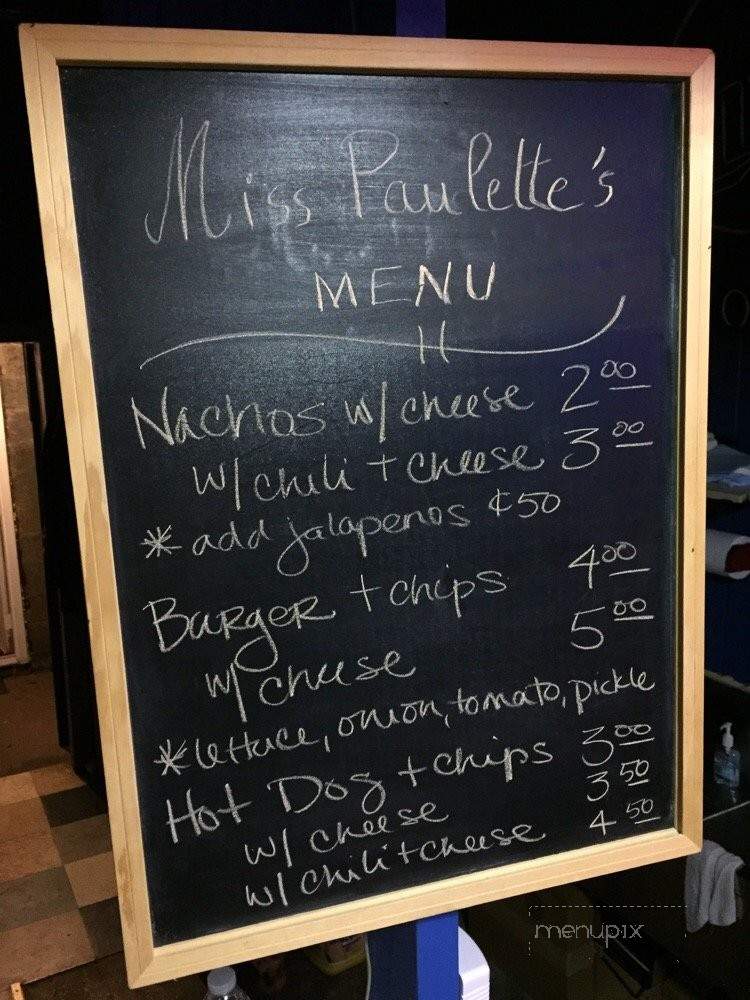 Miss Paulette's
MENU
Nachos w/ cheese 2.00
w/ chili + cheese 3.00
* add jalapenos ¢50
Burger + chips 4.00
w/ cheese 5.00
* lettuce, onion, tomato, pickle
Hot Dog + chips 3.00
w/ cheese 3.50
w/ chili + cheese 4.50
menupix